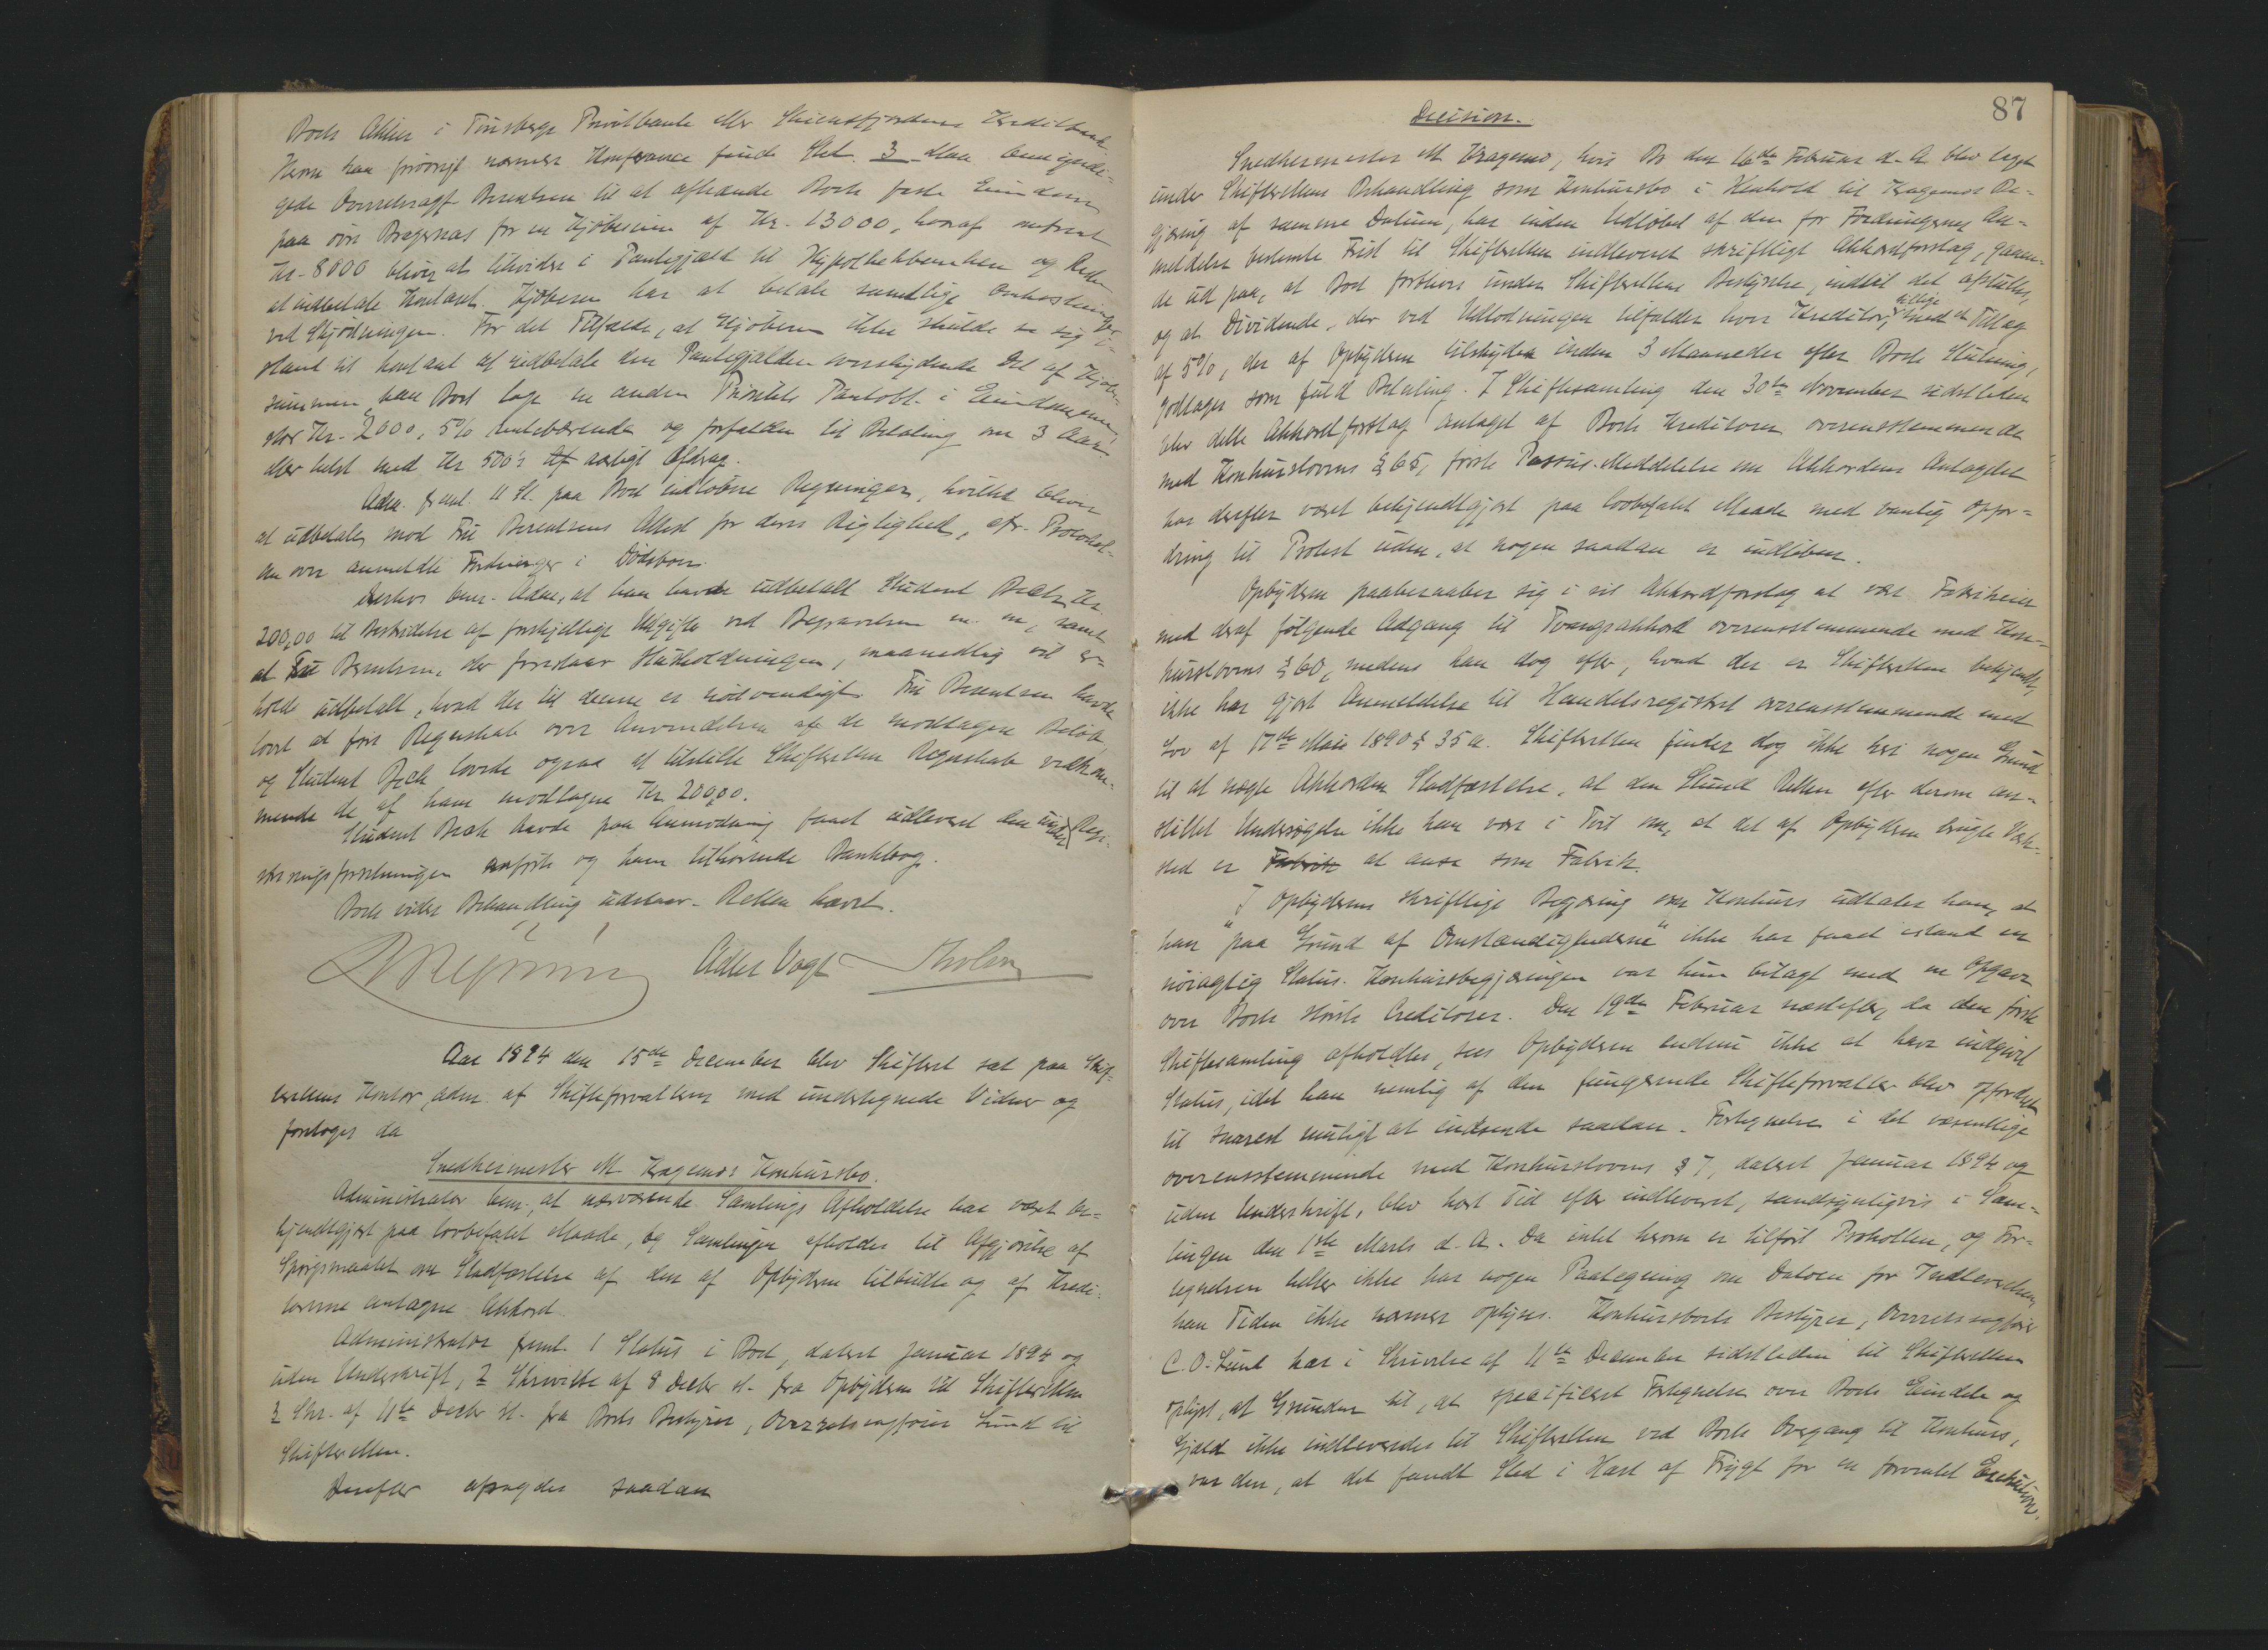 Boets Aktier i Tønsbergs Privatbank eller Skiensfjordens Kreditbank
Herom kan forøvrigt nærmere Konferance finde Sted. 3. Man bemyndi-
gede Overretssagf. Berentsen til at afhænde Boets faste Eiendom
paa øvre Bragernæs for en Kjøbesum af Kr. 13000, hvoraf omtrent
Kr. 8000 bliver at likvidere i Pantegjæld til Hypothekbanken og Resten
at indbetale kontant. Kjøberen har at betale samtlige Omkostninger
ved Skjødningen. For det Tilfælde, at Kjøberen ikke skulde se sig i-
stand til kontant at indbetale den Pantegjælden overskydende Del af Kjøbe-
summen, kan Boet tage en anden Prioritets Pantobl. i Eiendommen,
stor Kr. 2000, 5% rentebærende og forfalden til Betaling om 3 Aar,
eller helst med Kr 500's aarligt Afdrag.
Adm. freml. 11 St. paa Boet indløbne Regninger, hvilke bliver
at udbetale mod Fru Berentsens Attest for deres Rigtighed, cfr. Protokol-
len over anmeldte Fordringer i Dødsboer.
Derhos bem. Adm., at han havde udbetalt Student Bech Kr.
200,00 til Bestridelse af forskjellige Udgifter ved Begravelsen m. m., samt
at Fru Berentsen, der forestaar Husholdningen, maanedlig vil er-
holde udbetalt, hvad der til denne er nødvendigt. Fru Berentsen havde
lovet at føre Regnskab over Anvendelsen af de modtagne Beløb,
og Student Bech lovede ogsaa at tilstille Skifteretten Regnskab vedkom-
mende de af ham modtagne Kr. 200,00.
Student Bech havde paa Anmodning faaet udleveret den under Regi-
streringsforretningen anførte og ham tilhørende Bankbog.
Boets videre Behandling udstaar. Retten hævet.
Adler Vogt Skolem
Aar 1894 den 15de December blev Skifteret sat paa Skif-
terettens Kontor, adm. af Skifteforvalteren med undertegnede Vidner og
foretoges da
Snedkermester M. Kragemos Konkursbo.
Administrator bem., at nærværende Samlings Afholdelse har været be-
kjendtgjort paa lovbefalet Maade, og Samlingen afholdes til Afgjørelse af
Spørgsmaalet om Stadfæstelse af den af Opbyderen tilbudte og af Kredi-
torerne antagne Akkord.
Administrator freml. 1 Status i Boet, dateret Januar 1894 og
uden Underskrift, 2 Skrivelse af 8 Decbr. d. fra Opbyderen til Skifteretten
3 Skr. af 11te Decbr. d. fra Boets Bestyrer, Overretssagfører Lund til
Skifteretten.
Derefter afsagdes saadan
87
Decision.
Snedkermester M. Kragemo, hvis Bo den 16de Februar d. A. blev taget
under Skifterettens Behandling som Konkursbo i Henhold til Kragemos Be-
gjæring af samme Datum, har inden Udløbet af den for Fordringernes An-
meldelse bestemte Frist til Skifteretten indleveret skriftligt Akkordforslag, gaaen-
de ud paa, at Boet forbliver under Skifterettens Bestyrelse, indtil det afsluttes,
og at Dividende, der ved Udlodningen tilfalder hver Kreditor, tillige med et Tillæg
af 5%, der af Opbyderen tilskydes inden 3 Maaneder efter Boets Slutning,
godtages som fuld Betaling. I Skiftesamling den 30te November sidstleden
blev dette Akkordforslag antaget af Boets Kreditorer overensstemmende
med Konkurslovens § 65, første Passus. Meddelelse om Akkordens Antagelse
har derefter været bekjendtgjort paa lovbefalet Maade med vanlig Opfor-
dring til Protest uden, at nogen saadan er indløben.
Opbyderen paaberaaber sig i sit Akkordforslag at være Fabrikeier
med deraf følgende Adgang til Tvangsakkord overensstemmende med Kon-
kurslovens § 60, medens han dog efter, hvad der er Skifteretten bekjendt,
ikke har gjort Anmeldelse til Handelsregistret overensstemmende med
Lov af 17de Mai 1890 § 35 a. Skifteretten finder dog ikke heri nogen Grund
til at negte Akkorden Stadfæstelse, al den Stund Retten efter derom an-
stillet Undersøgelse ikke kan være i Tvil om, at det af Opbyderen brugte Værk-
sted er at anse som Fabrik.
I Opbyderens skriftlige Begjæring om Konkurs udtaler han, at
han "paa Grund af Omstændighederne" ikke har faaet istand en
nøiagtig Status. Konkursbegjæringen var kun bilagt med en Opgave
over Boets største Creditorer. Den 19de Februar næstefter, da den første
Skiftesamling afholdtes, sees Opbyderen endnu ikke at have indgivet
Status, idet han nemlig af den fungerende Skifteforvalter blev opfordret
til snarest muligt at indsende saadan. Fortegnelse i det væsentlige
overensstemmende med Konkurslovens § 7, dateret Januar 1894 og
uden Underskrift, blev kort Tid efter indleveret, sandsynligvis i Sam-
lingen den 1ste Marts d. A. Da intet herom er tilført Protokollen, og For-
tegnelsen heller ikke har nogen Paategning om Datoen for Indleverelsen,
kan Tiden ikke nærmere oplyses. Konkursboets Bestyrer, Overretssagfører
C. O. Lund har i Skrivelse af 11te December sidstleden til Skifteretten
oplyst, at Grunden til, at specificeret Fortegnelse over Boets Eiendele og
Gjæld ikke indleveredes til Skifteretten ved Boets Overgang til Konkurs,
var den, at det fandt Sted i Hast af Frygt for en forventet Exekution.